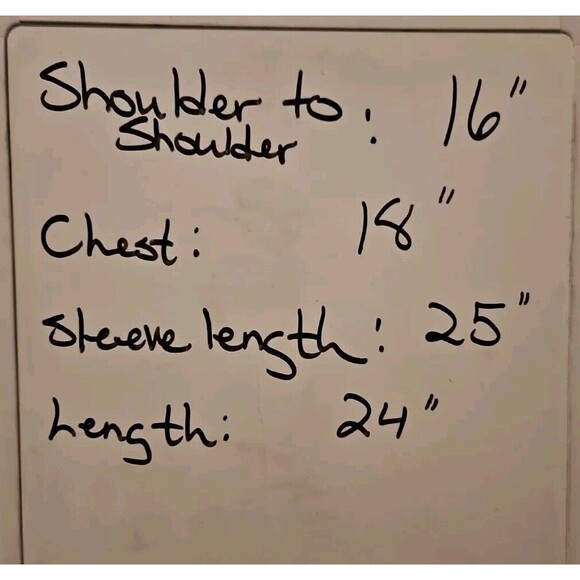 Shoulder to : 16"
Shoulder
Chest: 18"
Sleeve length: 25"
Length: 24"